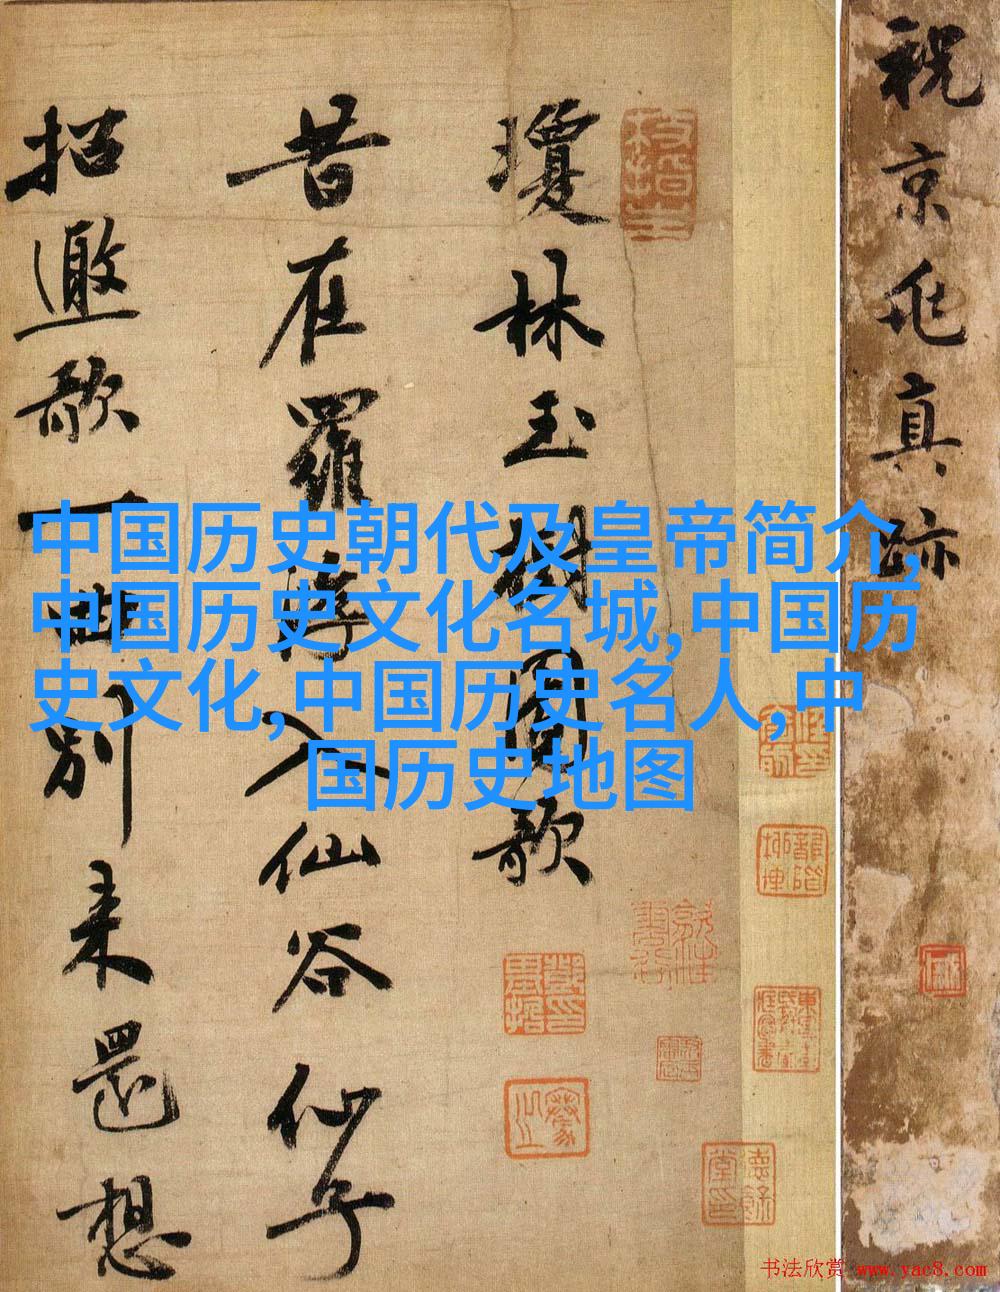 祝京兆真跡
瓊林玉樹圖歌
昔在羅浮入仙谷仙子
招邀歌一曲別来還想
中国历史朝代及皇帝简介,
中国历史文化名城,中国历
史文化,中国历史名人,中
国历史地图
书法欣赏 www.yac8.com